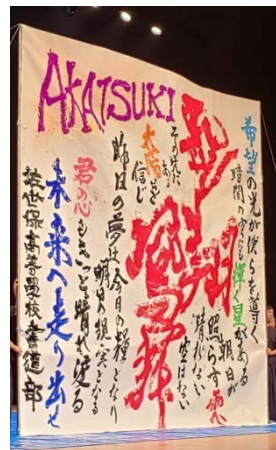 AKATSUKI
希望の光が僕らを導く
暗闇の空にも輝く星がある
朝日が
照らす
晴れない
空はない
その先に
ある
太陽を
信じ
昨日の夢は今日の糧となり
明日の現実となる
君の心もきっと晴れ渡る
未来へ走り出せ
高等學校書道部